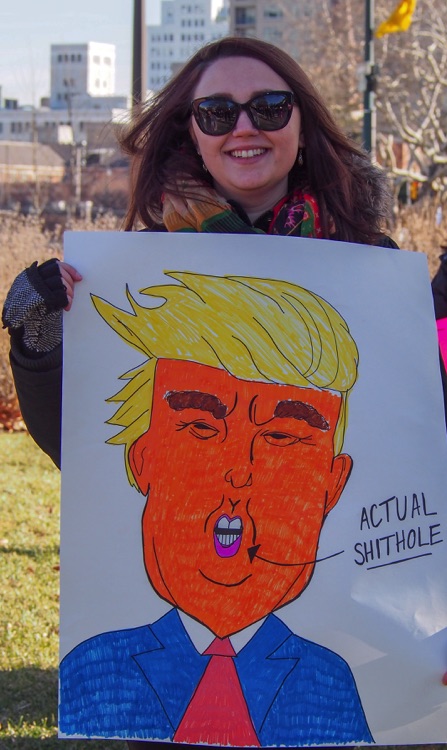 ACTUAL
SHITHOLE